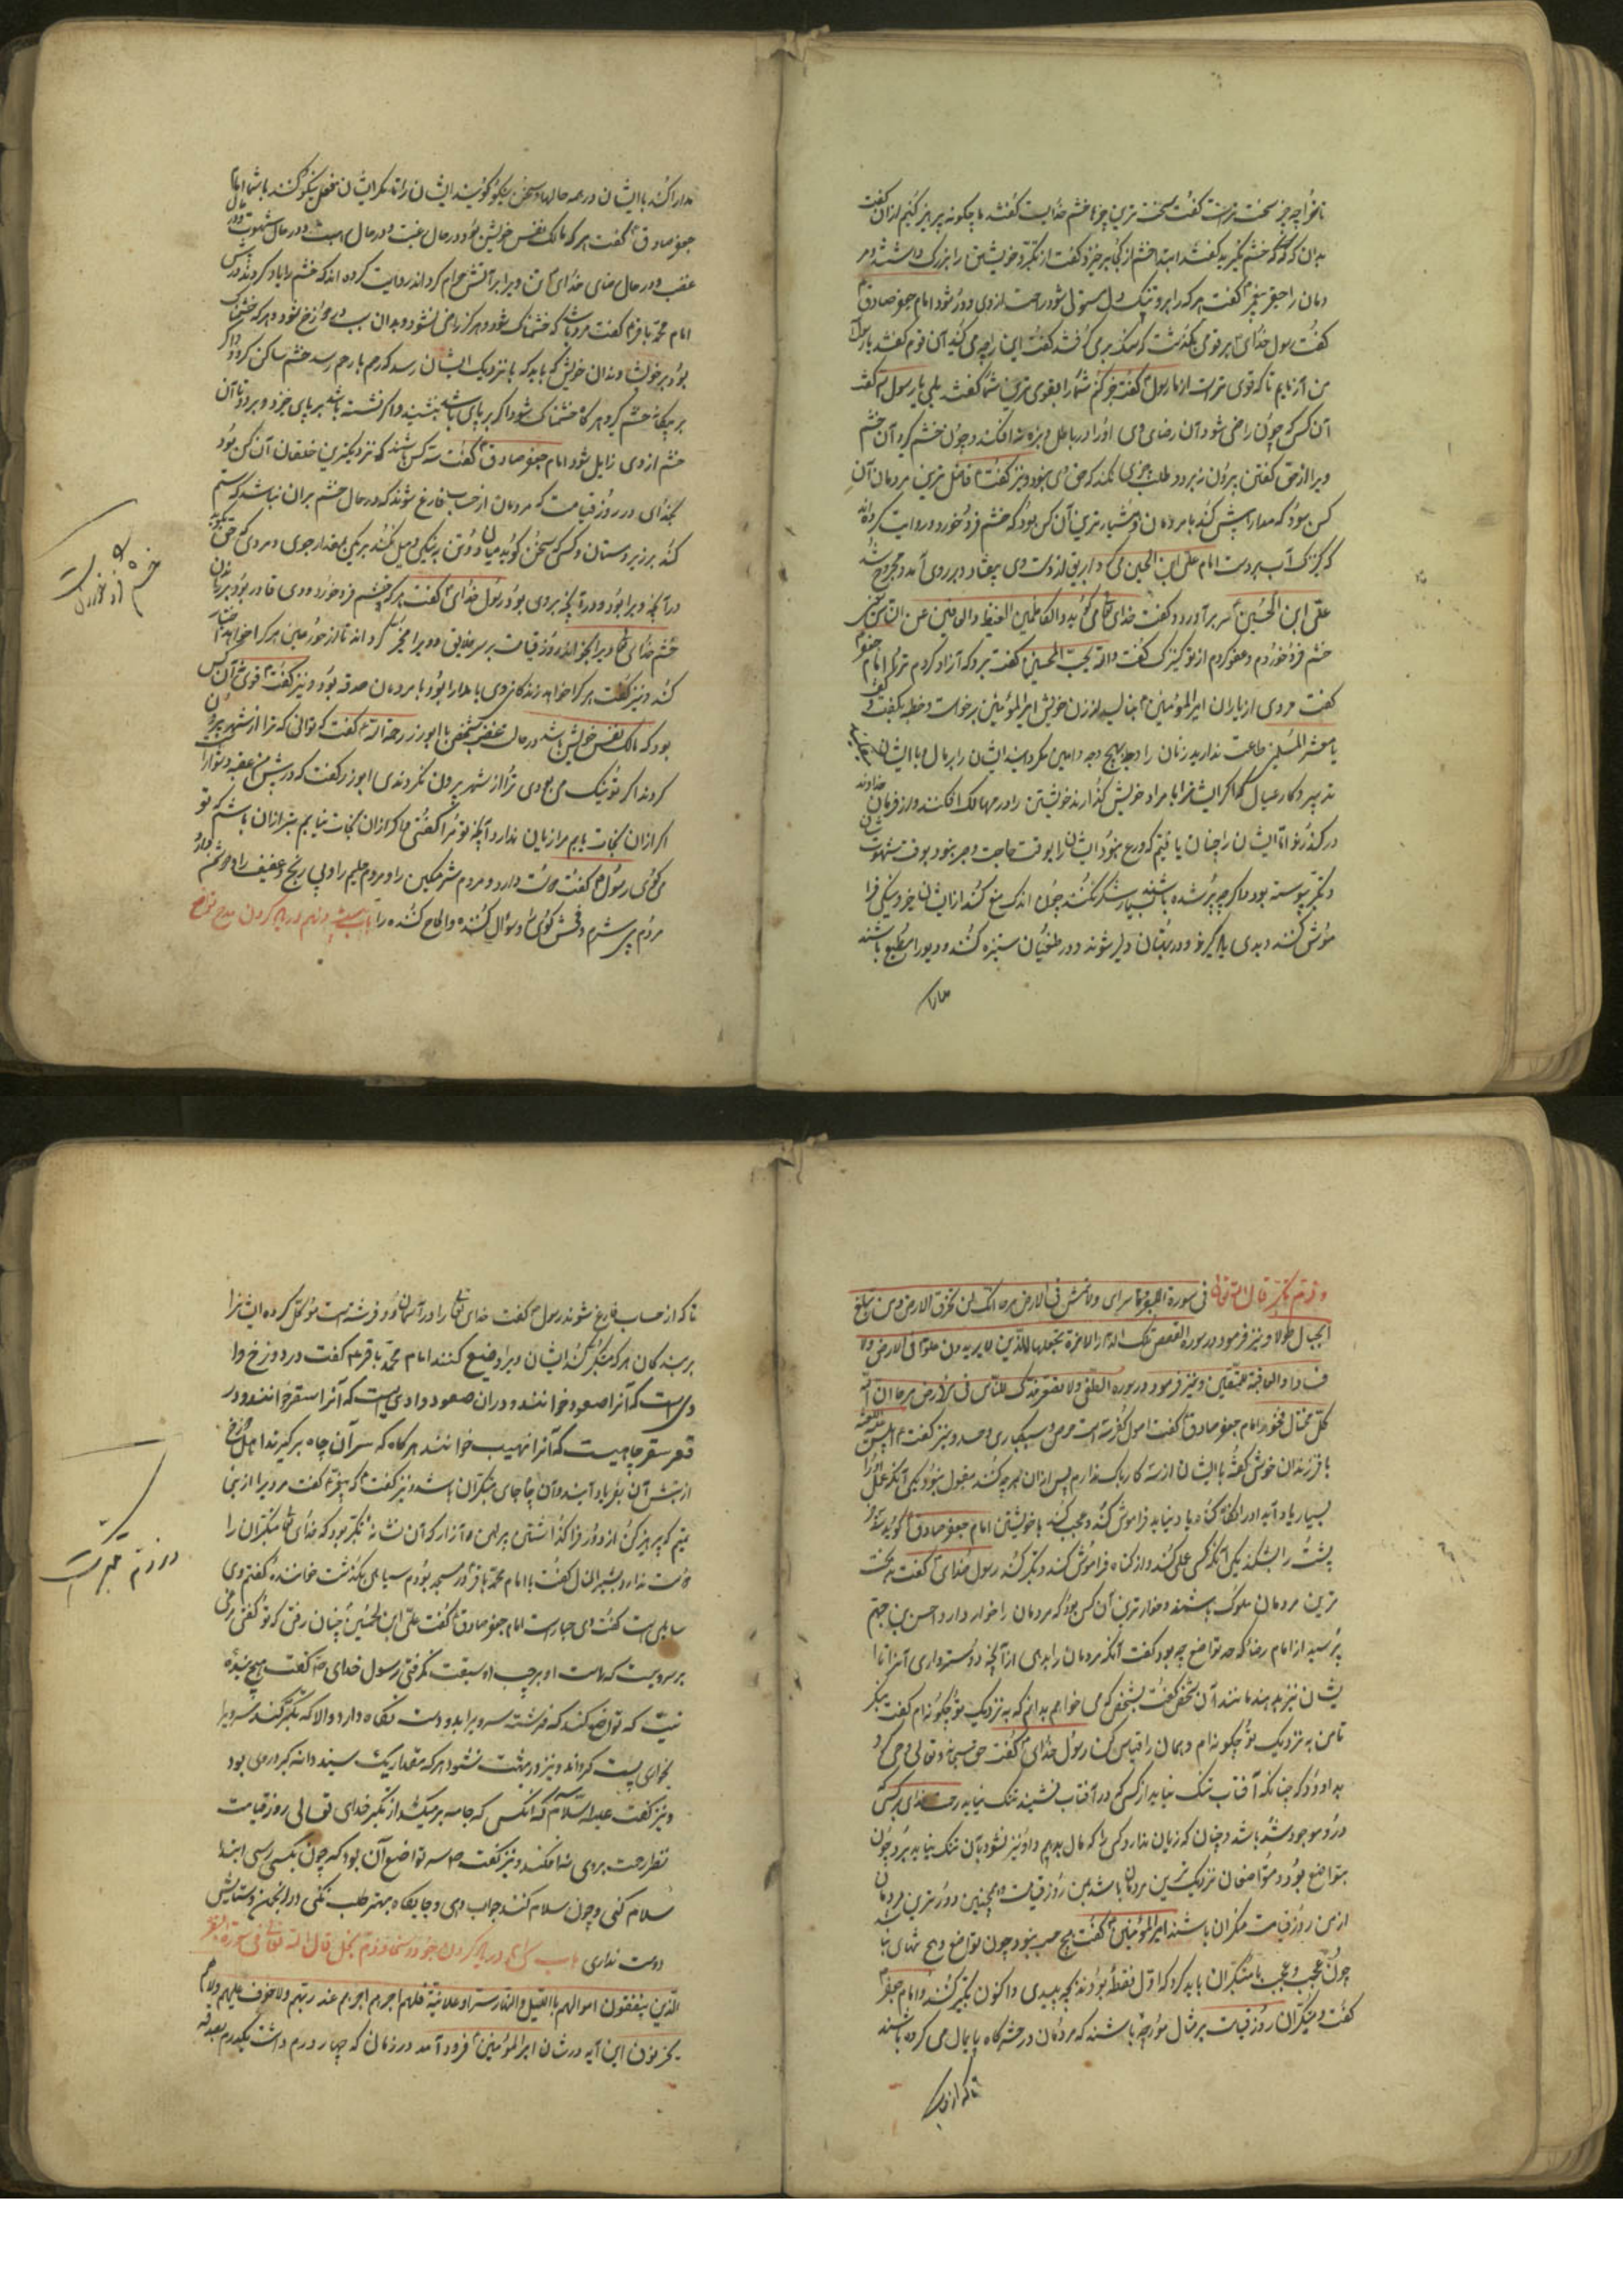 ما خواجه چیز سخت ترست گفت سخت ترین چیزها خشم خدایست گفتند بچگونه پرهیز کنیم از آن گفت
بدان که خشم نگیرید گفتند ابتدا خشم از کجا برخیزد گفت از تکبر و خویشتن را بزرگ داشتن و مر
دمان را حقیر
گفت رسول خدای بر قومی بگذشت که سنگ بر می گرفتند گفت این چه می کنید آن قوم گفتند یا رسول الله
می آزماییم تا که قوی ترست از ما رسول گفت خبر کنم شما را بقوی ترین شما گفتند بلی یا رسول الله گفت
آن کس که چون راضی شود آن رضای وی او را در باطل و بزه نه افکند و چون خشم گیرد آن خشم
ویرا از حق گفتن بیرون نبرد و طلب چیزی نکند که حق وی نبود و نیز گفت عاقل ترین مردمان آن
کس بود که مدارا بیش کند با مردمان و هشیارترین آن کس بود که خشم فرو خورد و روایت کرده اند
که کنیزک آب بر دست امام علی ابن الحسین می کرد ابریق از دست وی بیفتاد و بر روی آمد و مجروح شد
علی ابن الحسین سر برآورد و گفت خدای تعالی می گوید والکاظمین الغیظ والعافین عن الناس من
خشم فرو خوردم و عفو کردم از تو کنیزک گفت والله یحب المحسنین گفت برو که آزاد کردم ترا امام جعفر
گفت مردی از یاران امیر المؤمنین بنالید از زن خویش امیر المؤمنین برخاست و خطبه بگفت و گفت
یا معشر المسلمین طاعت ندارید زنان را در هیچ وجه و امین مگردانید ایشان را بر مال با ایشان
تدبیر و کار عیال که اگر ایشان را با مراد خویش گذارند خویشتن را در مهالک افکنند و از فرمان خداوند
در گذرند و ما ایشان را چنان یافتیم که ورع نبود ایشان را بوقت حاجت و صبر نبود بوقت شهوت
و تکبر پیوسته بود و اگر چه پیر شده باشند بسیار شکر نکنند چون اندک منع کند از ایشان خیر و نیکی فرا
موش کنند و بدی یاد گیرند و در بهتان دلیر شوند و در طغیان ستیزه کنند و دیو را مطیع باشند
مدارا
مدارا کنند با ایشان در همه حالها و سخن نیکو گوئید ایشان را تا مگر ایشان فعل نیکو کنند با شما امام
جعفر صادق گفت هر که مالک نفس خویش بود در حال رغبت و در حال رهبت و در حال شهوت و در حال
غضب و در حال رضای خدای تعالی تن ویرا بر آتش حرام کرداند روایت کرده اند که خشم را یاد کردند در پیش
امام محمد باقر گفت مرد باشد که خشمناک شود و هرگز راضی نشود و بدان سبب در دوزخ شود و هر که خشمناک
بود بر خویشاوندان خویش باید که با نزدیک ایشان رسد که رحم با رحم رسد خشم ساکن گردد و اگر
بر بیگانه خشم گیرد هر گاه خشمناک شود اگر بر پای باشد بنشیند و اگر نشسته باشد بر پای خیزد و برود تا آن
خشم از وی زایل شود امام جعفر صادق گفت سه کس باشند که نزدیکترین خلقان آن کس بود
بخدای در روز قیامت که مردمان از حساب فارغ شوند که در حال خشم بر آن نباشد که ستم
کند بر زیردستان و کسی که سخن گوید میان دو تن به نیکی و میل نکند بر یکی بمقدار جوی و مردی که حق بگوید
در آنچه ویرا بود و در آنچه بر وی بود رسول خدای گفت هر که خشم فرو خورد و وی قادر بود بر راندن
خشم خدای تعالی ویرا بخواند روز قیامت بر سر خلایق و ویرا مخیر گرداند تا از حور عین هر کرا خواهد اختیار
کند و نیز گفت هر کرا خواهد زندگانی وی با مدارا بود با مردمان صدقه بود و نیز گفت قوی آن کس
بود که مالک نفس خویش باشد در حال غضب شخصی با ابوذر رحمة الله گفت که توانی که ترا از شهر بیرون
کردند اگر تو نیک می بودی ترا از شهر بیرون نکردندی ابوذر گفت که در پیش من عقبه دشوار است
اگر از آن نجات یابم مرا زیان ندارد آنچه تو مرا گفتی و اگر از آن نجات نیابم بتر از آن باشم که تو
می گوئی رسول گفت دوست دارد و مردم شرمگین را و مردم حلیم را و بی رنج و عفیف را و دشمن دارد
مردم بی شرم و فحش گوی را و سؤال کننده و الحاح کننده را باب بیست و نهم در یاد کردن مدح تواضع
خشم فرو خوردن
و ذم تکبر قال الله تعالی فی سورة بنی اسرائیل ولا تمش فی الارض مرحا انک لن تخرق الارض ولن تبلغ
الجبال طولا و نیز فرمود در سورة القصص تلک الدار الآخرة نجعلها للذین لا یریدون علوا فی الارض ولا
فسادا والعاقبة للمتقین و نیز فرمود در سورة ولا تصعر خدک للناس ولا تمش فی الارض مرحا ان الله
کل مختال فخور امام جعفر صادق گفت اصول کفر سه است حرص و استکباری و حسد و نیز گفت ابلیس
با فرزندان خویش گفت با ایشان از سه کار باک ندارم پس از آن هر چه کند مقبول نبود یکی آنکه عمل
بسیار یاد آید او را دیگر گناه فراموش کند و عجب کند با خویشتن امام جعفر صادق گوید سه چیز
پشت را بشکند یکی آنکه کسی عمل کند و از گناه فراموش کند و تکبر کند رسول خدای گفت سخت
ترین مردمان ملوک باشند و خوارترین آن کس بود که مردمان را خوار دارد حسن بن جهم
پرسید از امام رضا که حد تواضع چه بود گفت آنکه مردمان را بدهی از آنچه دوستر داری آنرا تا ا
یشان نیز بدهند مانند آن شخصی گفت بشخصی که می خواهم بدانم که به نزدیک تو چگونه ام گفت بنگر
تا من به نزدیک تو چگونه ام و همان را قیاس کن رسول خدای گفت حق سبحانه و تعالی وحی کرد
به داود که چنانکه آفتاب تنگ نیاید از کسی که در آفتاب نشیند تنگ نیاید رحمت خدای بر کسی که
درو موجود شده باشد و چنان که زیان ندارد
متواضع بود و متواضعان نزدیک ترین مردمان باشند بمن روز قیامت و همچنین دورترین مردمان
از من روز قیامت متکبران باشند امیر المؤمنین گفت هیچ حسب نبود چون تواضع و هیچ تنهای نباشد
چون عجب و عجب با متکبران باید کرد که اول نطفه بودند نجس و پلیدی و اکنون تکبر کنند و امام جعفر
گفت متکبران روز قیامت بر مثال مورچه باشند که مردمان در حشرگاه پایمال می کرده باشند
تا که از حساب
تا که از حساب فارغ شوند رسول گفت خدای تعالی را در آسمان دو فرشته است موکل کرده ایشانرا
بر بندگان هر که تکبر کند ایشان ویرا وضیع کنند امام محمد باقر گفت در دوزخ وا
دی است که آنرا صعود خوانند و در آن صعود وادی است که آنرا سقر خوانند و در
قعر سقر چاهیست که آنرا نهیب خوانند هر گاه که سر آن چاه بر گیرند اهل دوزخ
از تبش آن بفریاد آیند و آن چاه جای متکبران باشد و نیز گفت که پیغمبر گفت مرد ویرا از بنی
تمیم که پرهیز کن از دور فرا گذاشتن پیراهن و ازار که آن نشانهٔ تکبر بود که خدای تعالی متکبران را
دوست ندارد بشیر النبال گفت با امام محمد باقر در مسجد بودم سیاهی بگذشت خرامنده گفتم وی
سیاهی است گفت وی جبار است امام جعفر صادق گفت علی ابن الحسین چنان رفتی که تو گفتی مرغی
بر سرویست که راست او بر چپ او سبقت نگرفتی رسول خدای گفت هیچ بندهٔ
نیست که تواضع کند که فرشته سر ویرا بدو دست نگاه دارد و الا که تکبر کند سر ویرا
بخواری پست گرداند و نیز در بهشت نشود هر که مقدار یک سپند دانه کبر در وی بود
و نیز گفت علیه السلام که آنکس که جامه بر میکشد از تکبر خدای تعالی روز قیامت
نظر رحمت بر وی نه افکند و نیز گفت که تواضع آن بود که چون بکسی رسی ابتدا
سلام کنی و چون سلام کنند جواب دهی و جایگاه بهتر طلب نکنی در انجمن و ستایش
دوست نداری باب سی ام در یاد کردن جود و سخا و ذم بخل قال الله تعالی فی سورة البقرة
الذین ینفقون اموالهم باللیل والنهار سرا وعلانیة فلهم اجرهم عند ربهم ولا خوف علیهم ولا هم
یحزنون این آیه در شان امیر المؤمنین فرود آمد در زمان که چهار درم داشت یکدرم بصدقه
در ذم تکبر است